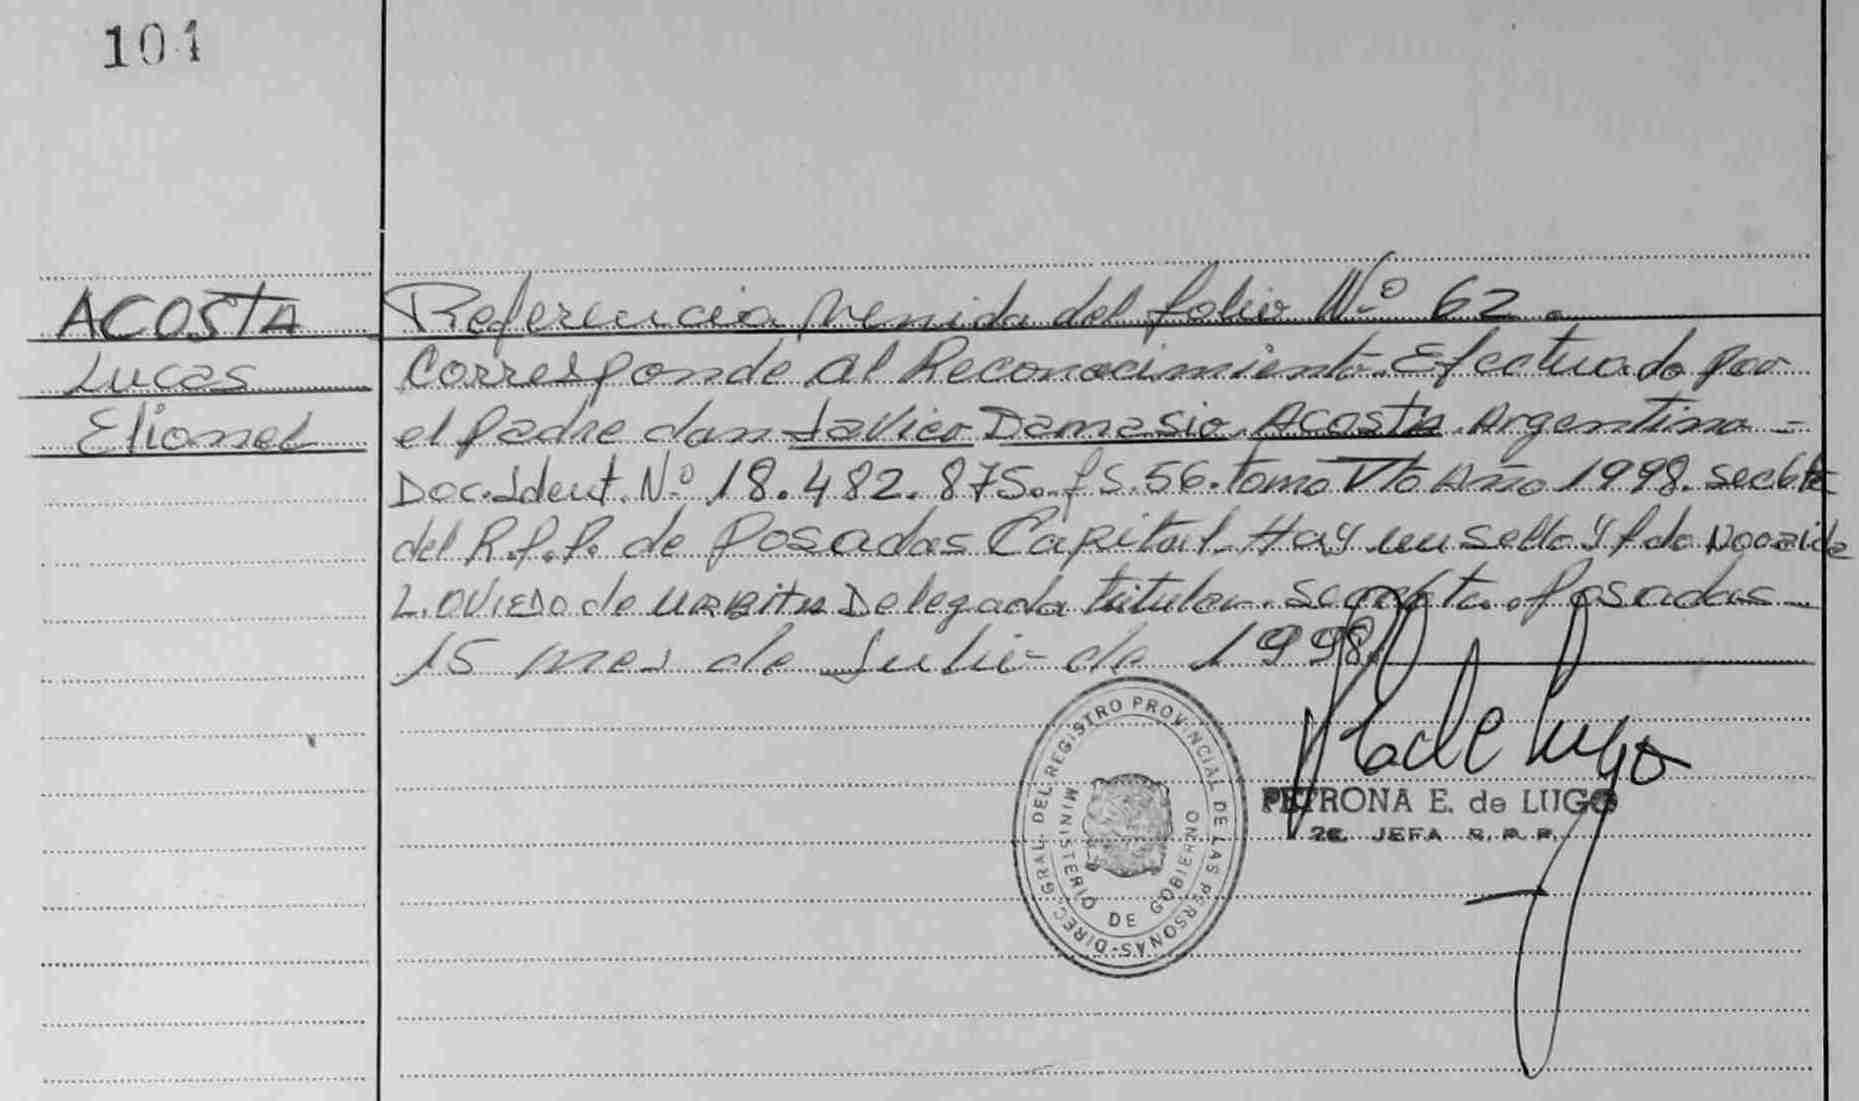 101
ACOSTA
Lucas
Elionel
Referencia Venida del folio Nº 62.
Corresponde al Reconocimiento Efectuado por
el padre don Javier Damasio Acosta Argentino -
Doc. Ident. Nº 18.482.875. fs. 56. tomo Vto Año 1998.
del R.P.P. de Posadas Capital. Hay un sello y fdo
L. OVIEDO de URBITA Delegada titular. Posadas
15 mes de Julio de 1998.
DIREC. GRAL. DEL REGISTRO PROVINCIAL DE LAS PERSONAS
MINISTERIO DE GOBIERNO
P E de Lugo
PETRONA E. de LUGO
2da. JEFA R.P.P.